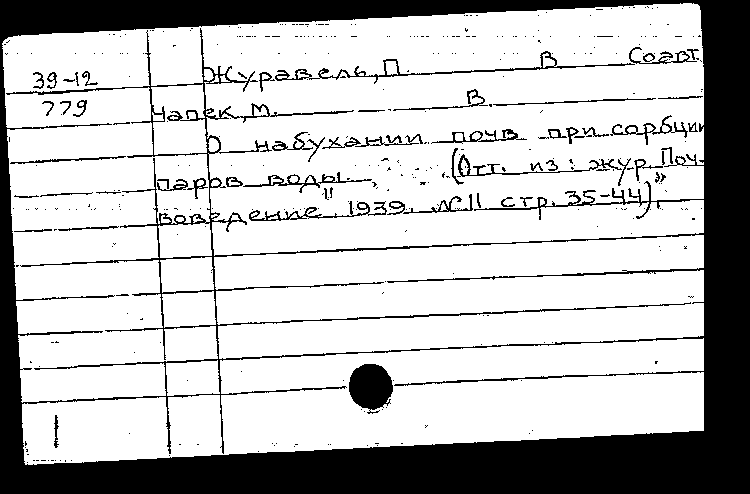 39-12 Журавель, П. В Соавт.
779 Чапек, М. В.
О набухании почв при сорбции
паров воды (Отт. из: жур. Поч-
воведение" 1939. №11 стр. 35-44)".